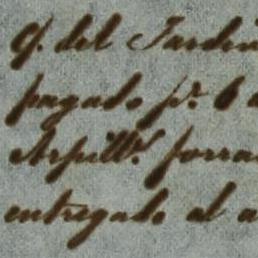 q. del Jardin
pagado pr. 6 a
Arpills. forra
entregado al a